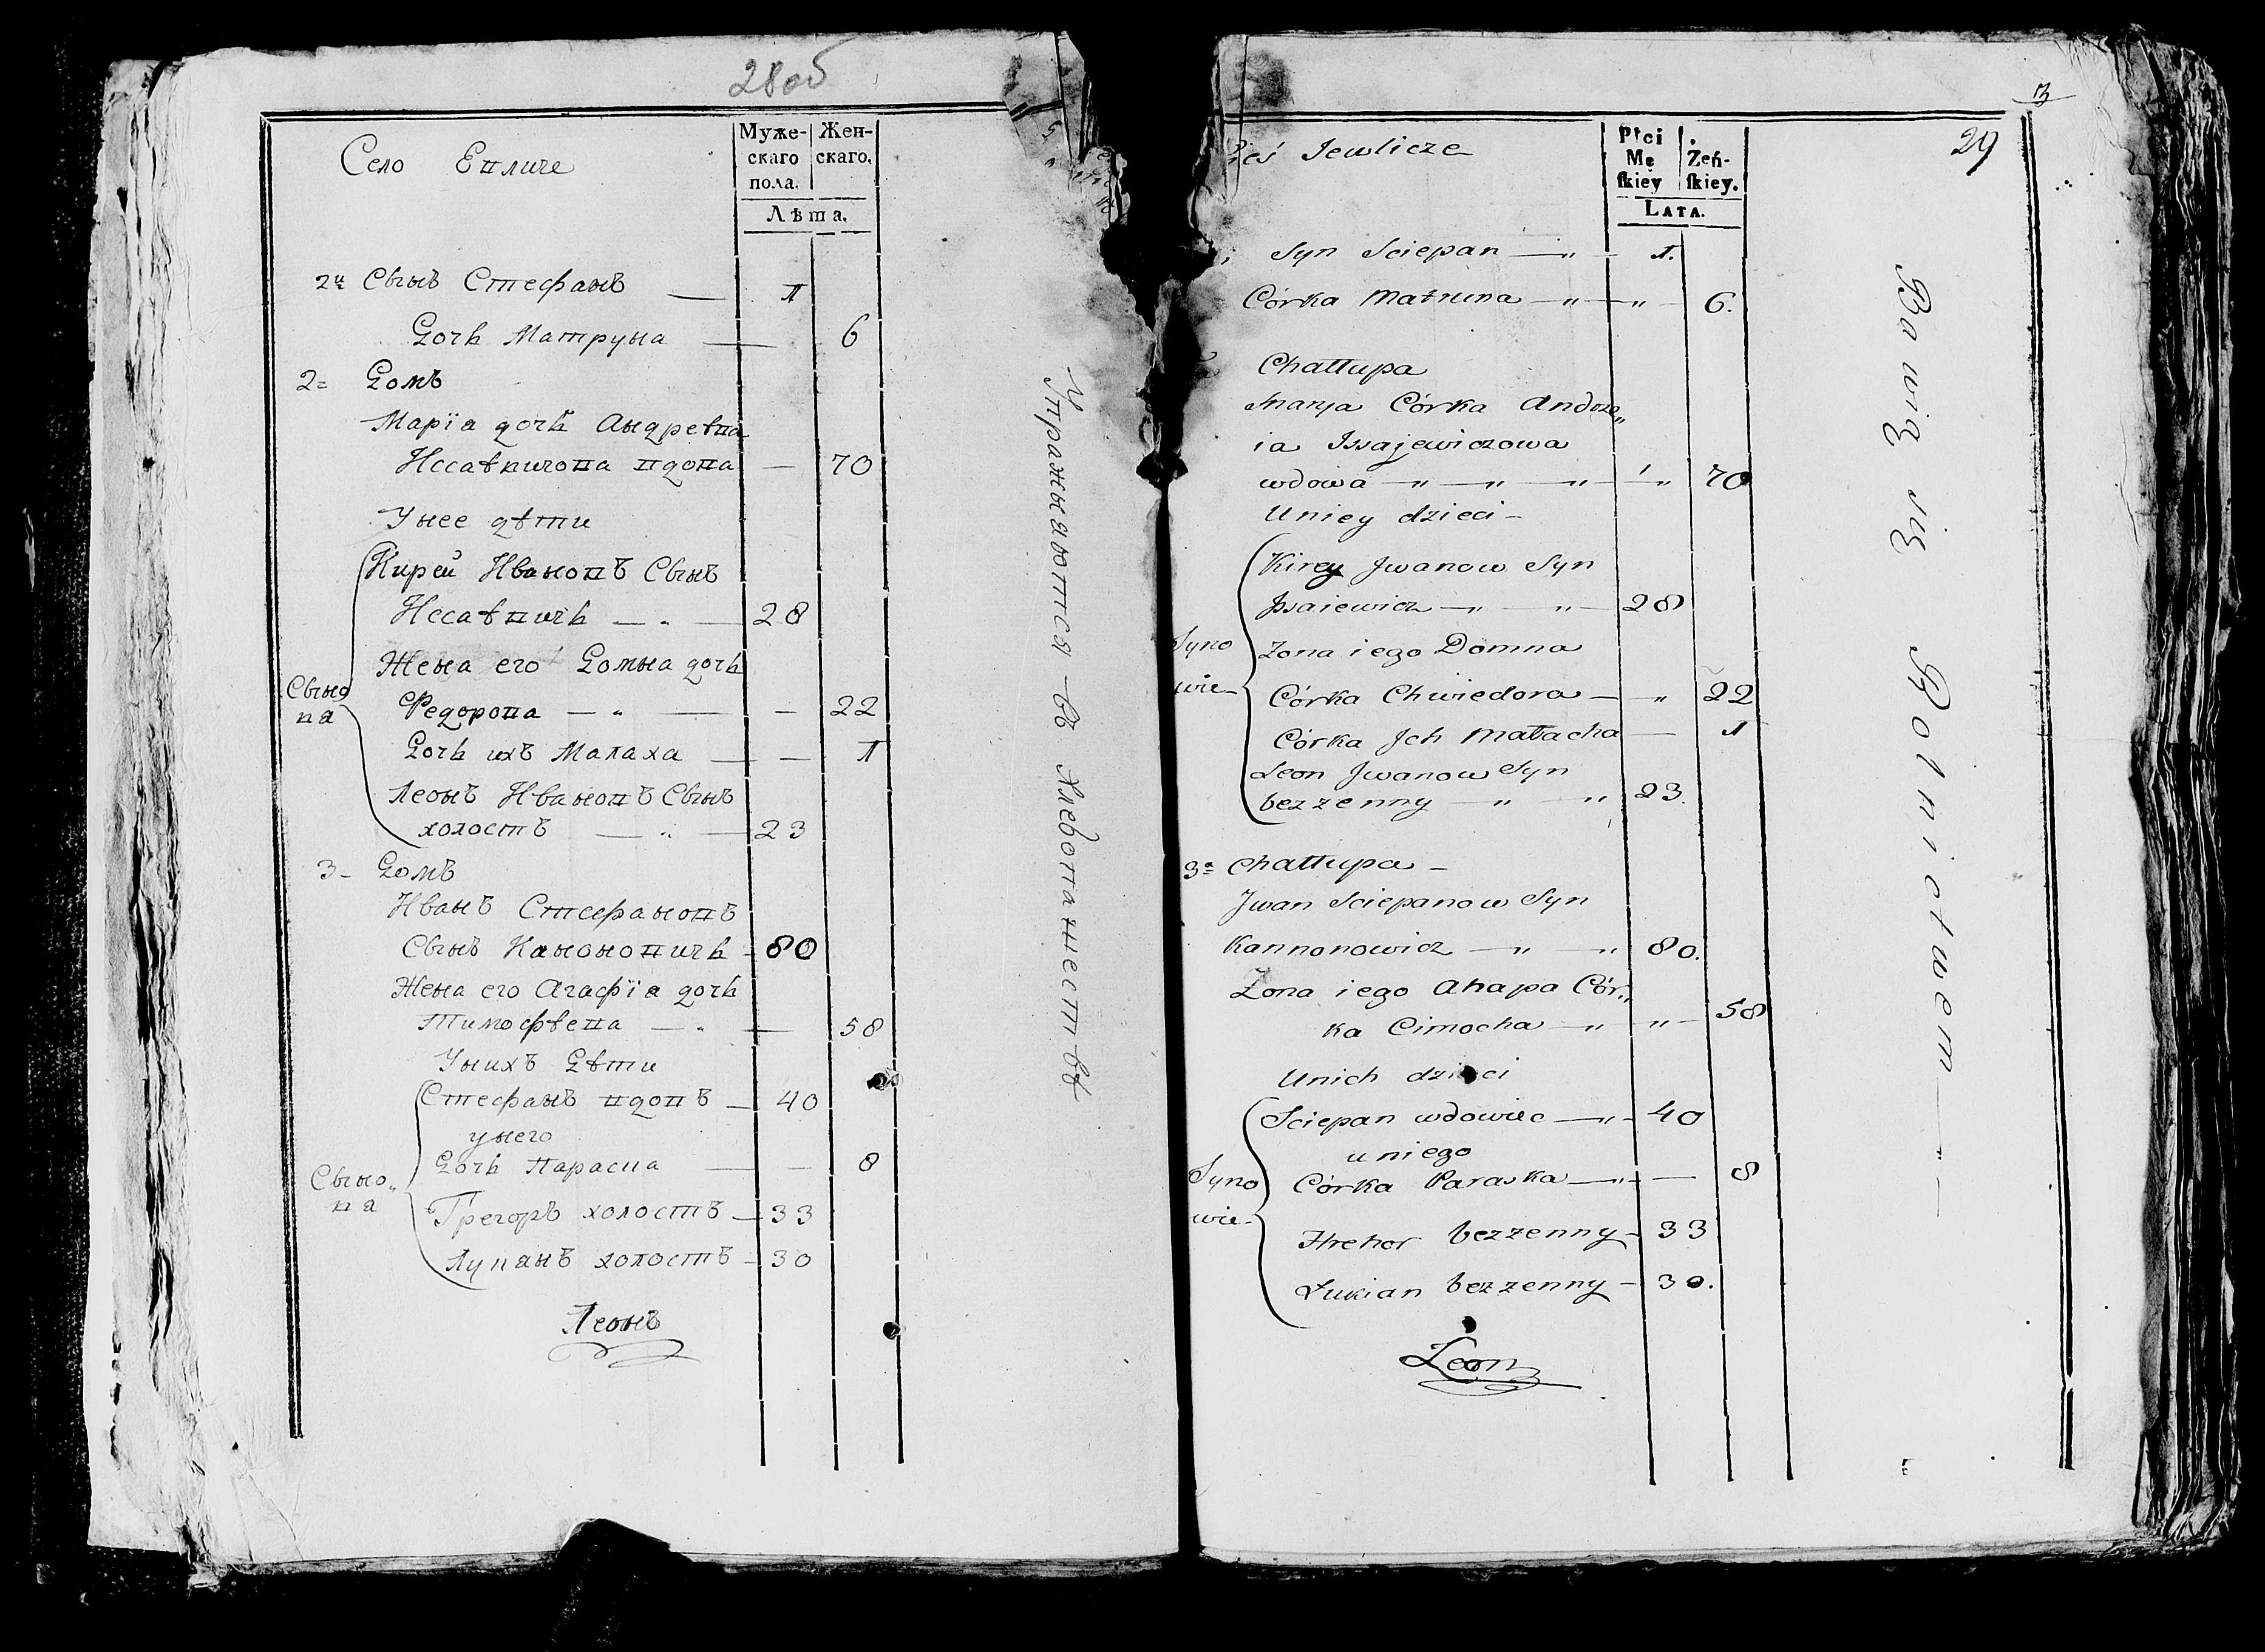 28об
Село Евличе
Муже-
скаго
пола.
Жен-
скаго.
Лѣта.
2й Сынъ Стефанъ — 1
Дочь Матруна — 6
2= Домъ
Марїа дочь Андреѣва
Исаѣвичова вдова — 70
Унее дѣти
Кирей Ивановъ Сынъ
Иссаѣвичь — „ — 28
Жена его Домна дочь
Федорова — „ — — 22
Дочь ихъ Малаха — — 1
Леонъ Ивановъ Сынъ
холостъ — „ — 23
Сыно
ва
3- Домъ
Иванъ Стефановъ
Сынъ Канонoвичь - 80
Жена его Агафїа дочь
Тимофѣева — „ — 58
Унихъ Дѣти
Стефанъ вдовъ — 40
унего
Дочь Параска — — 8
Грегоръ холостъ — 33
Лукянъ холостъ - 30
Сыно„
ва
Леонъ
Упражняются въ Хлебопашествѣ
29
Jewlicze
Płci
Mę
skiey
Zeń-
skiey.
LATA.
Syn Sciepan — „ — 1.
Córka Matruna — „ — „ — 6.
Chattupa
Marya Córka Andrze„
ia Issajewiczowa
wdowa — „ — „ — „ — „ 70
Uniey dzieci —
Kirey Jwanow Syn
Jssaiewicz — „ — „ — 28
Zona iego Domna
Córka Chwiedora — „ 22
Córka Jch Małacha — 1
Leon Jwanow Syn
bezzenny — „ — „ 23.
Syno
wie
3= Chattupa —
Jwan Sciepanow Syn
Kannonowicz — „ — „ 80.
Zona iego Ahapa Cór„
ka Cimocha — „ „ — 58
Unich dzieci
Sciepan wdowiec — „ — 40
uniego
Córka Paraska — „ — — 8
Hrehor bezzenny — 33
Łukian bezzenny — 30.
Syno
wie-
Leon
Bawią się Rolnictwem — „ —